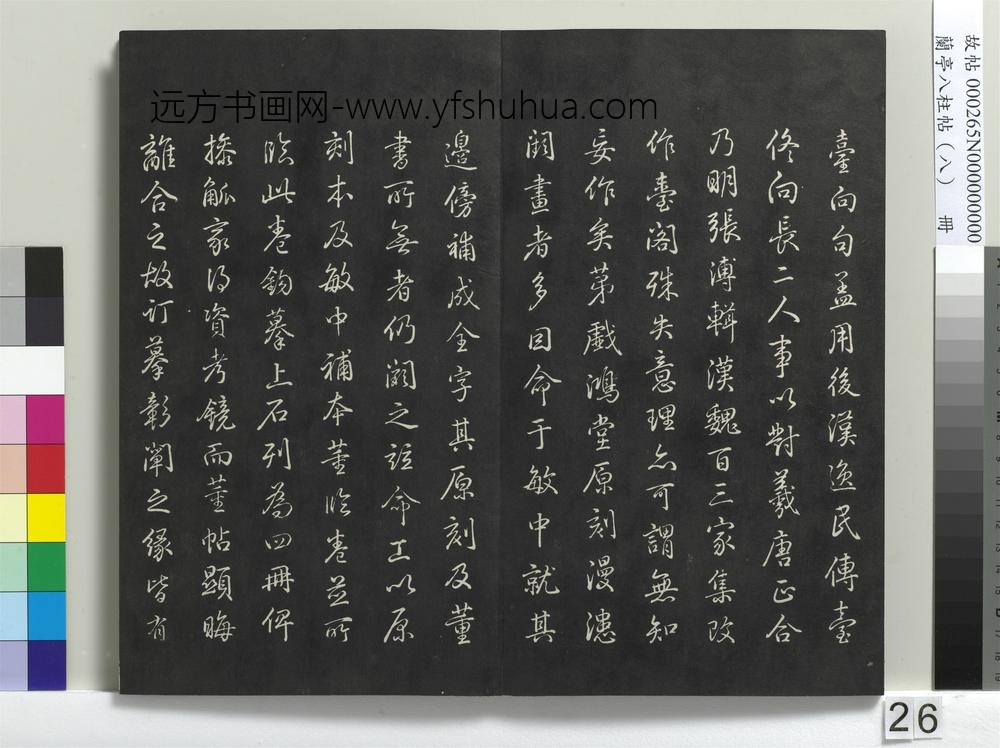 臺向句盖用後漢逸民傳臺
佟向長二人事以對羲唐正合
乃明張溥輯漢魏百三家集改
作臺閣殊失意理亦可謂無知
妄作矣第戲鴻堂原刻漫漶
闕畫者多因命于敏中就其
邊傍補成全字其原刻及董
書所無者仍闕之玆命工以原
刻本及敏中補本董臨卷並所
臨此卷鉤摹上石列為四冊俾
操觚家得資考鏡而董帖顯晦
離合之故訂摹彰闡之緣皆有
远方书画网-www.yfshuhua.com
故帖 000265N000000000
蘭亭八柱帖（八） 冊
26